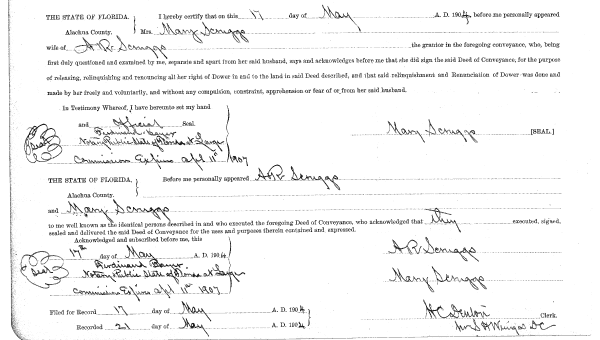 THE STATE OF FLORIDA, I hereby certify that on this 17 day of May A. D. 1904, before me personally appeared
Alachua County. Mrs. Mary Scruggs
wife of A R Scruggs the grantor in the foregoing conveyance, who, being
first duly questioned and examined by me, separate and apart from her said husband, says and acknowledges before me that she did sign the said Deed of Conveyance, for the purpose
of releasing, relinquishing and renouncing all her right of Dower in and to the land in said Deed described, and that said relinquishment and Renunciation of Dower was done and
made by her freely and voluntarily, and without any compulsion, constraint, apprehension or fear of or from her said husband.
In Testimony Whereof, I have hereunto set my hand
and Official Seal.
Ferdinand Bayer
(Seal) Notary Public State of Florida at Large
Mary Scruggs [SEAL]
Commission Expires Apl 11th 1907
THE STATE OF FLORIDA, Before me personally appeared A R Scruggs
Alachua County.
and Mary Scruggs
to me well known as the identical persons described in and who executed the foregoing Deed of Conveyance, who acknowledged that they executed, signed,
sealed and delivered the said Deed of Conveyance for the uses and purposes therein contained and expressed.
Acknowledged and subscribed before me, this
17th day of May A. D. 1904
A R Scruggs
Ferdinand Bayer
(Seal) Notary Public State of Florida at Large
Mary Scruggs
Commission Expires Apl 11th 1907
Filed for Record 17 day of May A. D. 1904
H C Denton Clerk.
Recorded 21 day of May A. D. 1904
D C